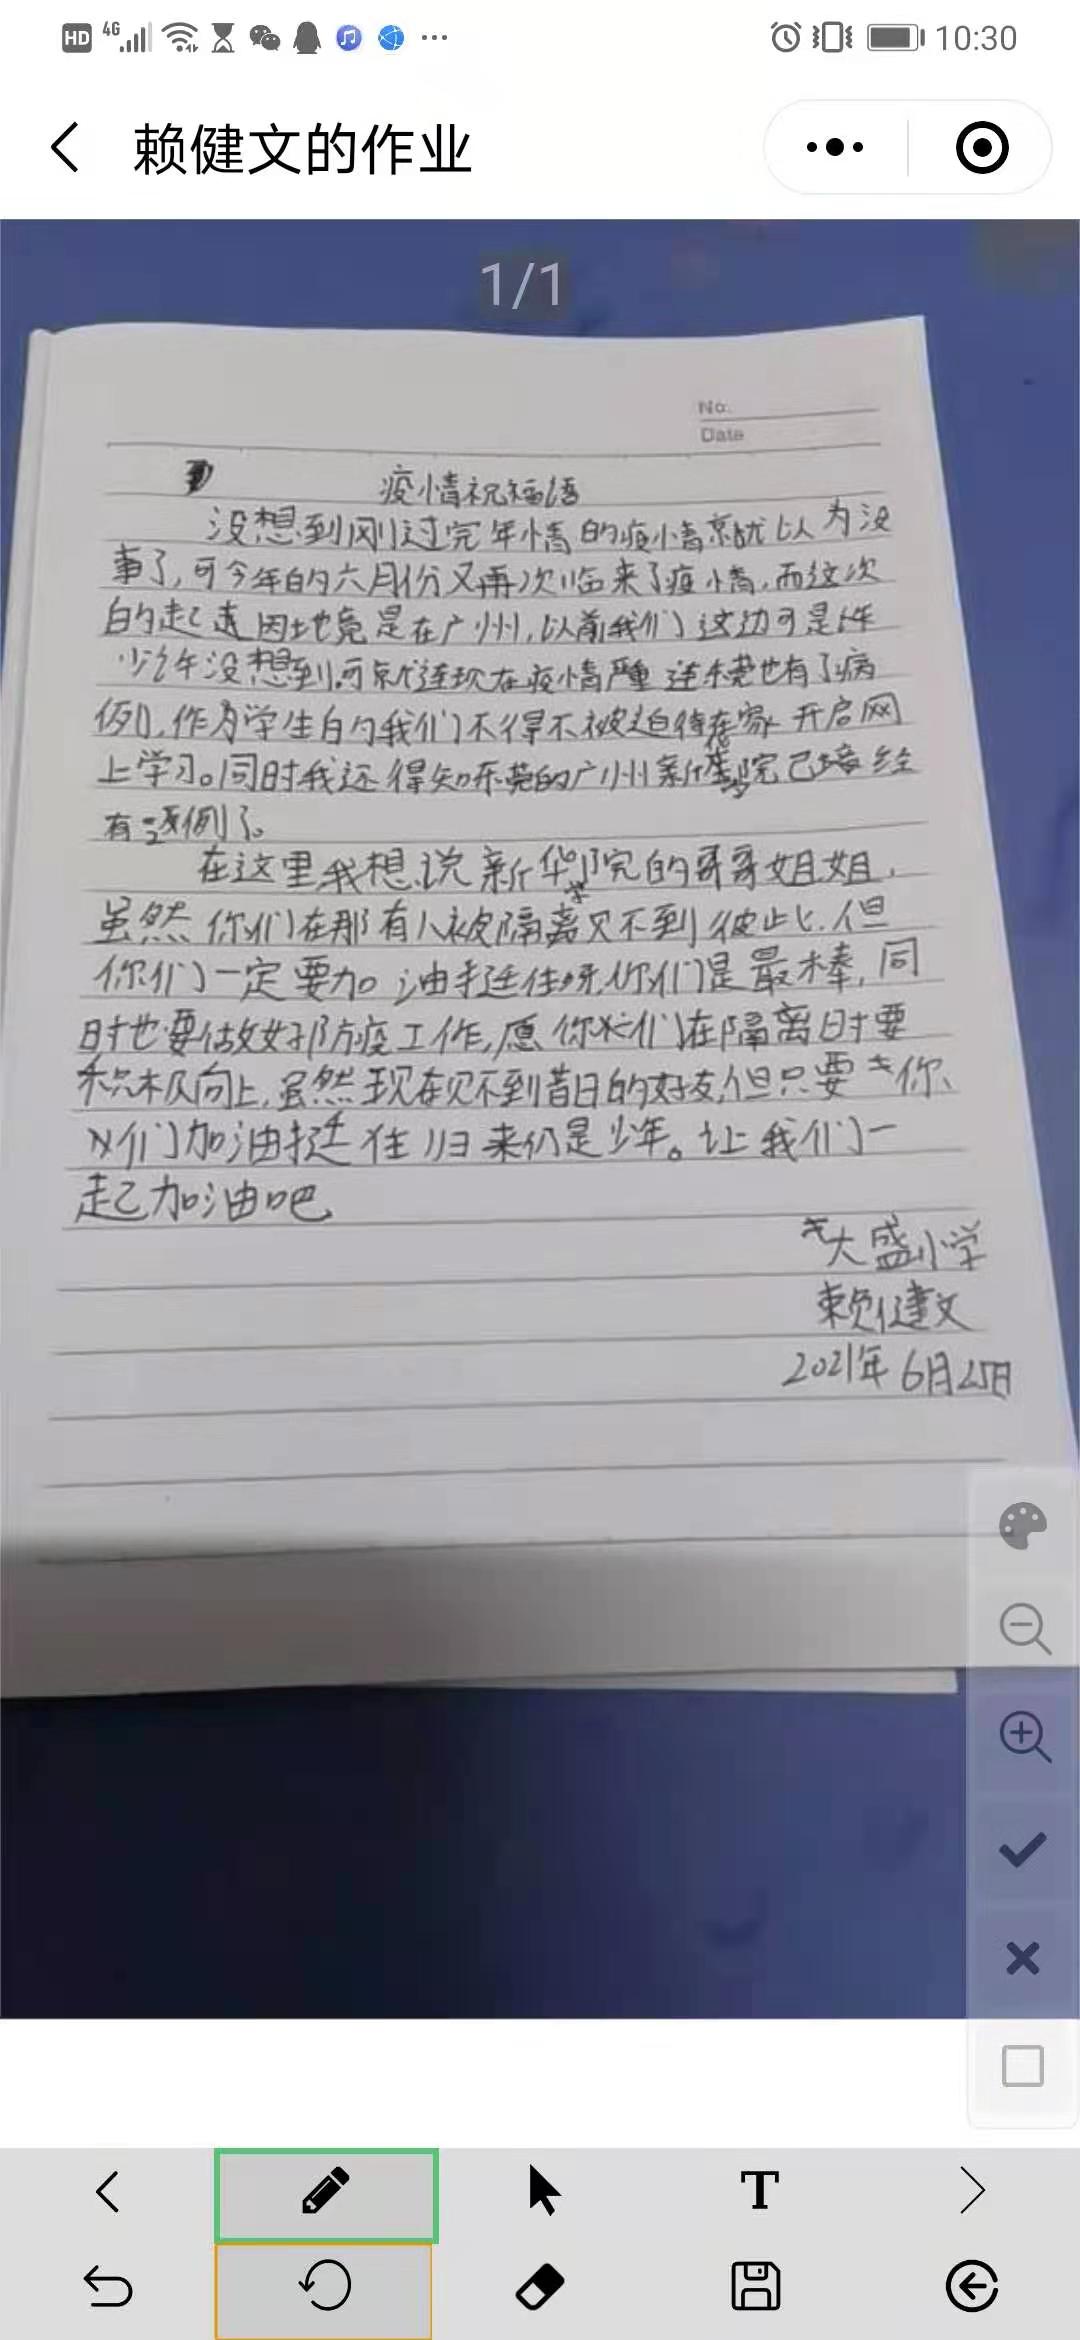 HD 4G 10:30
赖健文的作业
1/1
No.
Date
疫情祝福语
没想到刚过完年情的疫情就以为没
事了,可今年的六月份又再次临来了疫情,而这次
的起因地竟是在广州,以前我们这边可是
没想到,可就连现在疫情严重连东莞也有了病
例,作为学生的我们不得不被迫待在家开启网
上学习。同时我还得知东莞的广州新华学院已经
有 例了。
在这里我想说新华学院的哥哥姐姐,
虽然你们在那有人被隔离见不到彼此,但
你们一定要加油挺住呀,你们是最棒,同
时也要做好防疫工作,愿你们在隔离时要
积极向上,虽然现在见不到昔日的好友,但只要你
们加油挺住归来仍是少年。让我们一
起加油吧
大盛小学
赖健文
2021年6月25日
T